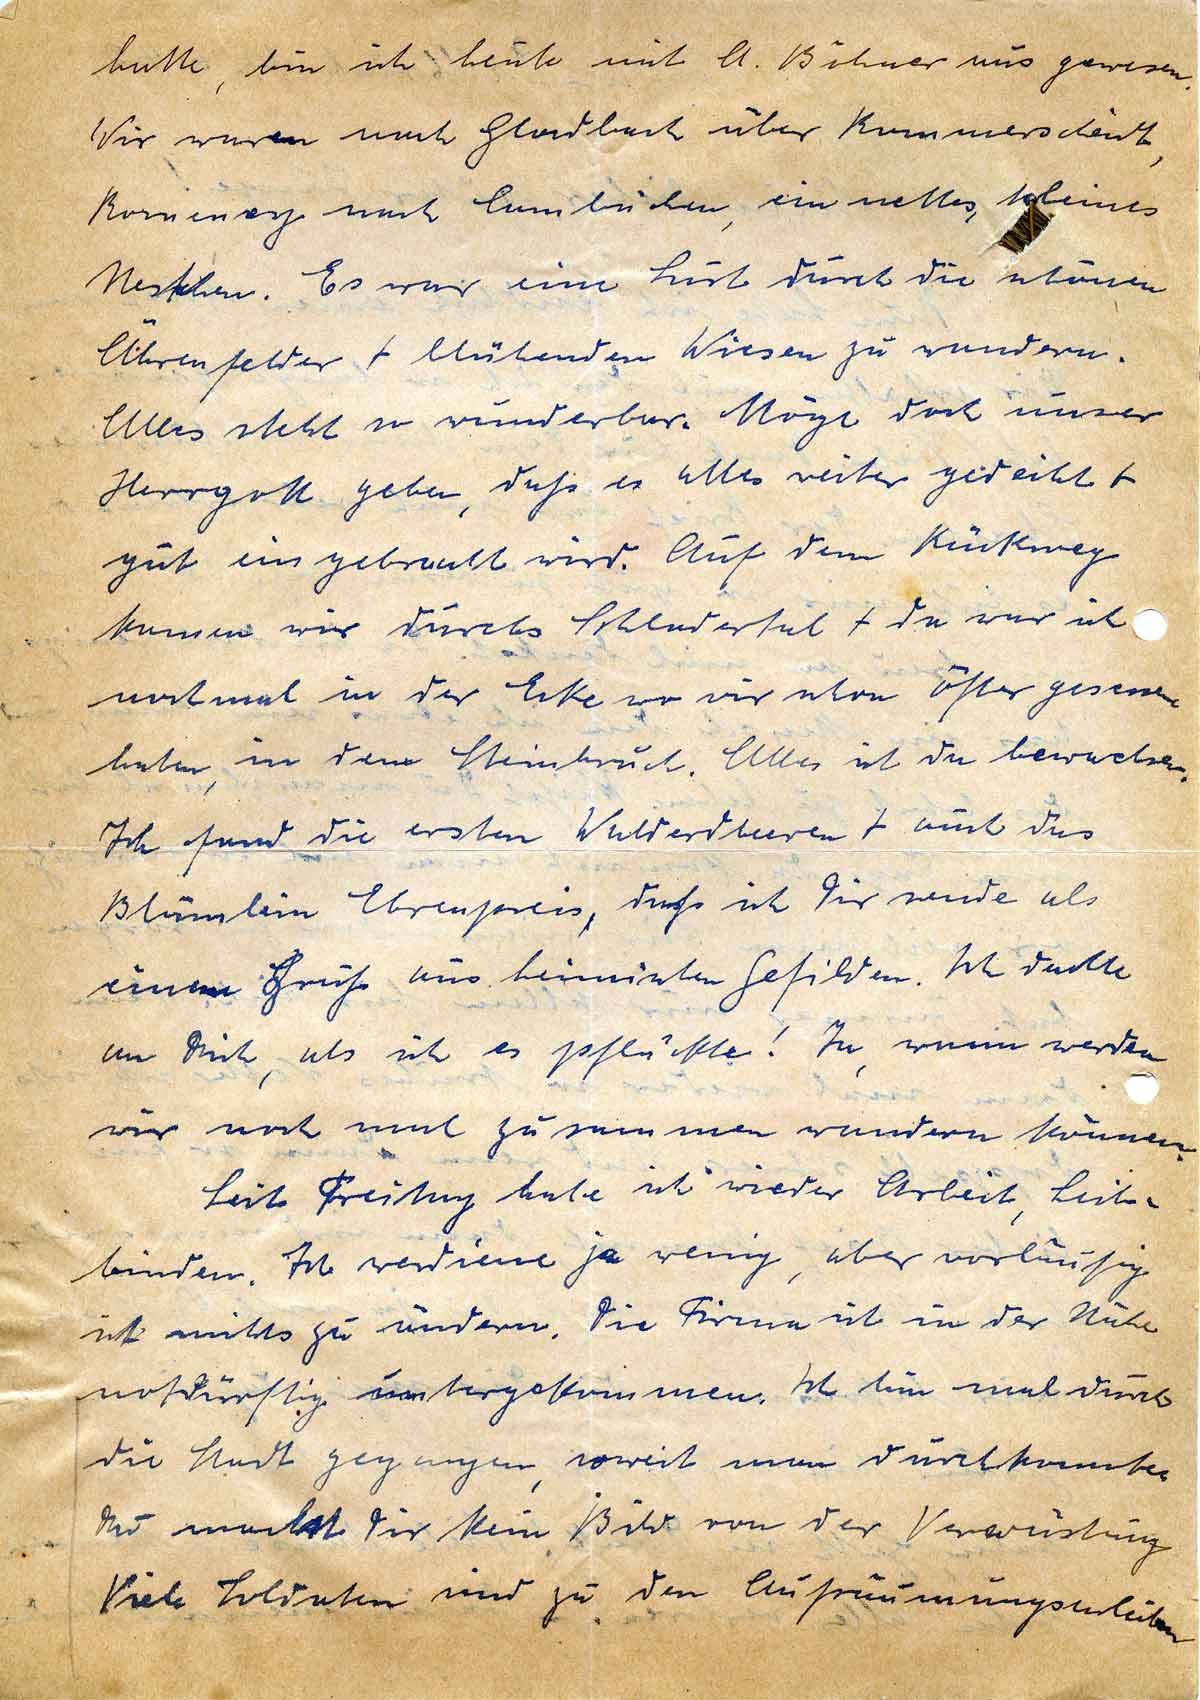 hatte, bin ich heute mit A. Böhner aus gewesen.
Wir waren nach Gladbach über Kummerscheidt,
nach Lumbüchen, ein nettes, kleines
Nestchen. Es war eine Lust durch die schönen
Ährenfelder + blühenden Wiesen zu wandern.
Alles steht so wunderbar. Möge doch unser
Herrgott geben, daß es alles weiter gedeiht +
gut eingebracht wird. Auf dem Rückweg
kamen wir durchs Schladertal + da war ich
nochmal in der Ecke wo wir schon öfter gesessen
haben, in dem Steinbruch. Alles ist da bewachsen.
Ich fand die ersten Walderdbeeren + auch das
Blümlein Ehrenpreis, daß ich Dir sende als
einen Gruß aus heimischen Gefilden. Ich dachte
an Dich, als ich es pflückte! Ja, wann werden
wir noch mal zusammen wandern können.
Seit Freitag habe ich wieder Arbeit,
binden. Ich verdiene ja wenig, aber vorläufig
ist nichts zu ändern. Die Firma ist in der Nähe
notdürftig untergekommen. Ich bin mal durch
die Stadt gegangen, soweit man durchkonnte
Du machst Dir kein Bild von der Verwüstung
Viele Soldaten sind zu den Aufräumungsarbeiten